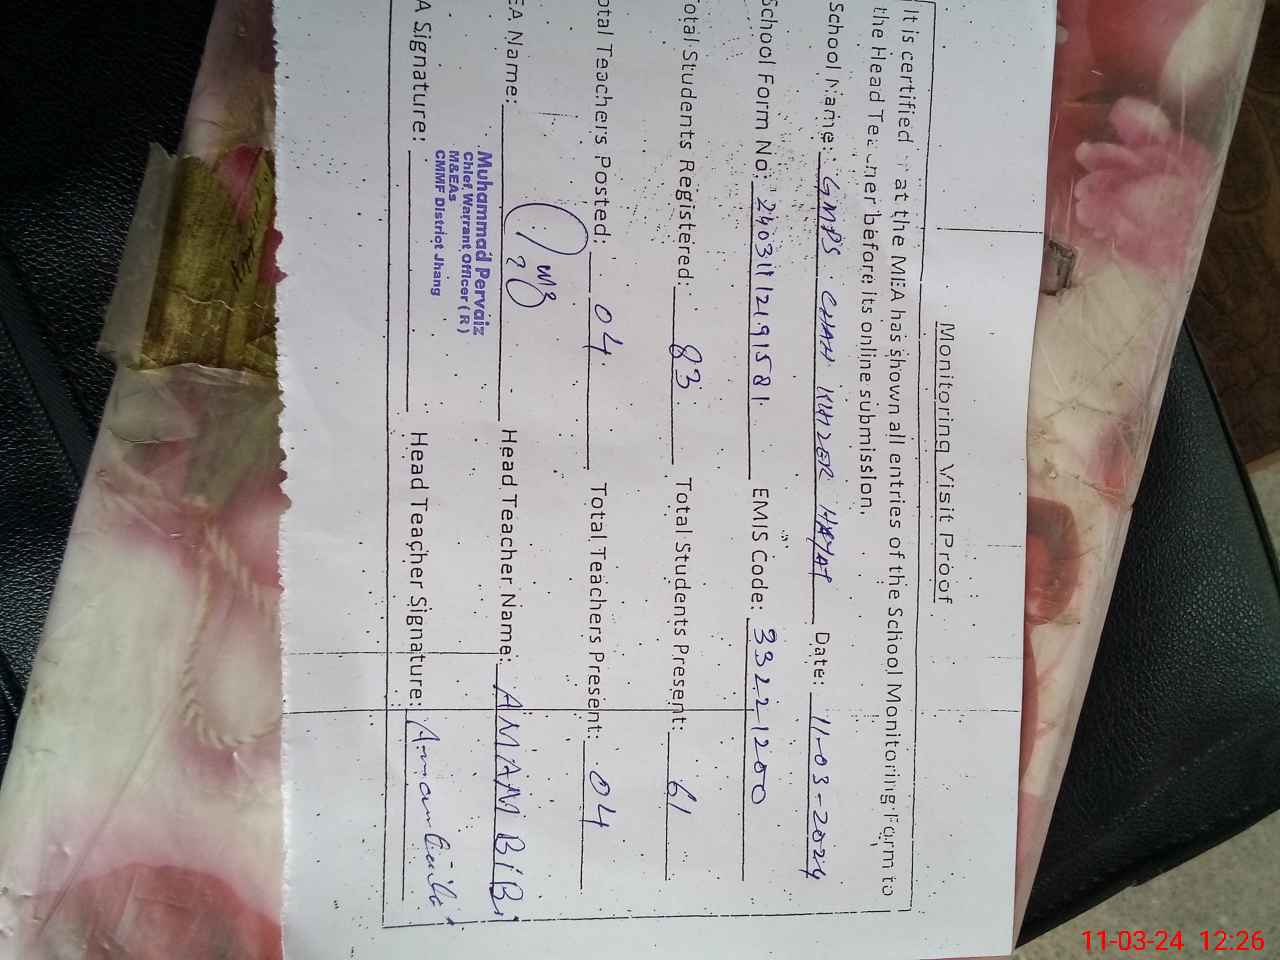 Monitoring Visit Proof
It is certified at the MEA has shown all entries of the School Monitoring Form to
the Head Teacher before its online submission.
School Name: GMPS CHAH KHIZER HAYAT Date: 11-03-2024
School Form No: 24031112191581 EMIS Code: 33221200
Total Students Registered: 83 Total Students Present: 61
otal Teachers Posted: 04 Total Teachers Present: 04
EA Name: Head Teacher Name: AMAM BIBI
Muhammad Pervaiz
Chief, Warrant Officer ( R )
M&EAs
CMMF District Jhang
A Signature: Head Teacher Signature:
11-03-24 12:26